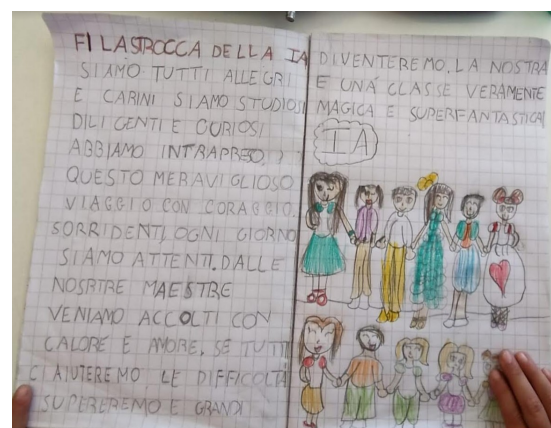 FILASTROCCA DELLA IA
SIAMO TUTTI ALLEGRI
E CARINI SIAMO STUDIOSI
DILIGENTI E CURIOSI
ABBIAMO INTRAPRESO,
QUESTO MERAVIGLIOSO
VIAGGIO CON CORAGGIO.
SORRIDENTI, OGNI GIORNO
SIAMO ATTENTI. DALLE
NOSRTRE MAESTRE
VENIAMO ACCOLTI CON
CALORE E AMORE. SE TUTTI
CI AIUTEREMO LE DIFFICOLTÀ
SUPEREREMO E GRANDI
DIVENTEREMO. LA NOSTRA
E UNA CLASSE VERAMENTE
MAGICA E SUPERFANTASTICA
IA